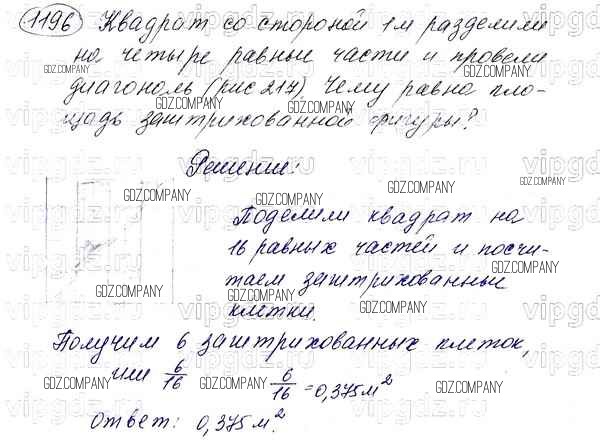 1196 Квадрат со стороной 1м разделили
на четыре равные части и провели
диагональ (рис 217) Чему равна пло-
щадь заштрихованной фигуры?
Решение:
Поделили квадрат на
16 равных частей и посчи-
таем заштрихованные
клетки.
Получим 6 заштрихованных клеток,
или 6/16 6/16 = 0,375 м²
Ответ: 0,375 м².